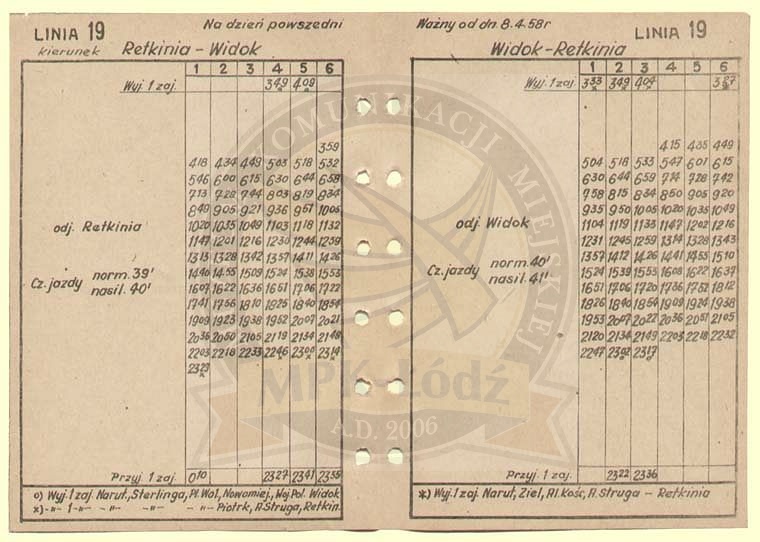 LINIA 19
Na dzień powszedni
kierunek Retkinia - Widok
1 2 3 4 5 6
Wyj. 1 zaj. 349 409
359
418 434 449 503 518 532
546 600 615 630 644 658
713 728 744 803 819 834
849 905 921 936 951 1005
odj. Retkinia 1020 1035 1049 1103 1118 1132
1147 1201 1216 1230 1244 1259
1313 1328 1342 1357 1411 1426
Cz. jazdy norm. 39' 1440 1455 1509 1524 1538 1553
nasil. 40' 1607 1622 1636 1651 1706 1722
1741 1756 1810 1825 1840 1854
1909 1923 1938 1952 2007 2021
2036 2050 2105 2119 2134 2148
2203 2218 2233 2246 2300 2314
2329
Przyj. 1 zaj. 010 2327 2341 2355
o) Wyj. 1 zaj. Narut., Sterlinga, Pl. Wol., Nowomiej., Woj. Pol. Widok
x) -"- 1 -"- -"- -"- -"- -"- Piotrk., A. Struga, Retkin.
Ważny od dn. 8.4.58r
LINIA 19
Widok-Retkinia
1 2 3 4 5 6
Wyj. 1 zaj. 333 349 404
415 435 449
504 518 533 547 601 615
630 644 659 714 728 742
758 815 834 850 905 920
935 950 1005 1020 1035 1049
odj. Widok 1104 1119 1133 1147 1202 1216
1231 1245 1259 1314 1328 1343
1357 1412 1426 1441 1455 1510
Cz. jazdy norm. 40' 1524 1539 1553 1608 1622 1637
nasil. 41' 1651 1706 1720 1736 1752 1812
1826 1840 1854 1909 1924 1938
1953 2007 2022 2036 2051 2105
2120 2134 2149 2203 2218 2232
2247 2302 2317
Przyj. 1 zaj. 2322 2336
*) Wyj. 1 zaj. Narut., Ziel., Al. Kość., A. Struga - Retkinia
KOMUNIKACJI MIEJSKIEJ
MPK-Łódź
A.D. 2006